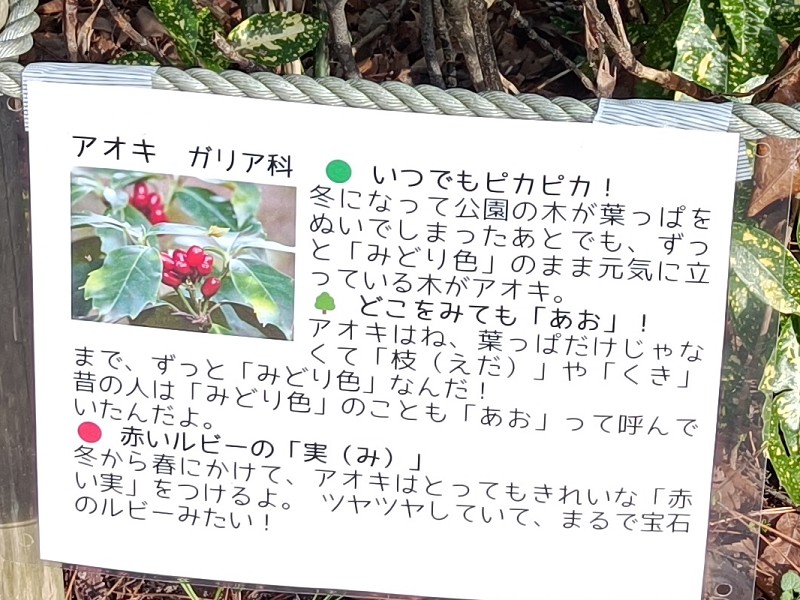 アオキ　ガリア科
いつでもピカピカ！
冬になって公園の木が葉っぱを
ぬいでしまったあとでも、ずっ
と「みどり色」のまま元気に立
っている木がアオキ。
どこをみても「あお」！
アオキはね、葉っぱだけじゃな
くて「枝（えだ）」や「くき」
まで、ずっと「みどり色」なんだ！
昔の人は「みどり色」のことも「あお」って呼んで
いたんだよ。
赤いルビーの「実（み）」
冬から春にかけて、アオキはとってもきれいな「赤
い実」をつけるよ。　ツヤツヤしていて、まるで宝石
のルビーみたい！